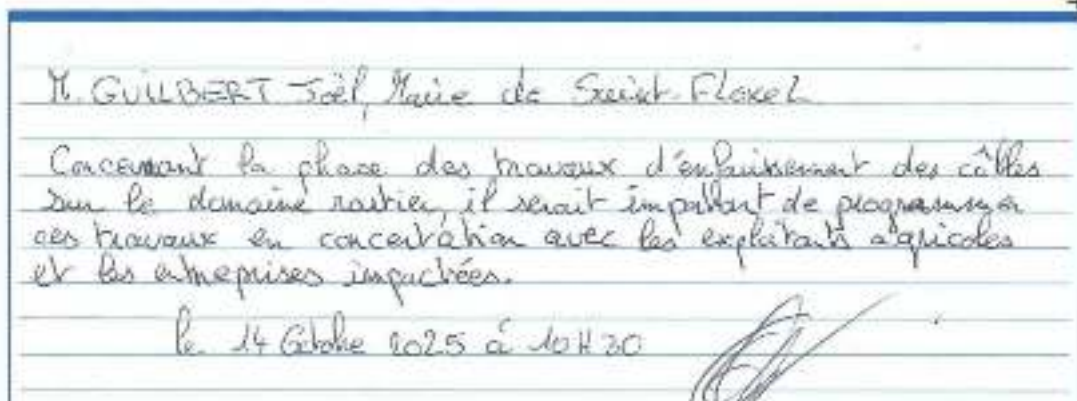 M. GUILBERT Joël, Maire de Saint-Floxel
Concernant la phase des travaux d'enfouissement des câbles
sur le domaine routier, il serait important de programmer
ces travaux en concertation avec les exploitants agricoles
et les entreprises impactées.
le 14 Octobre 2025 à 10H20